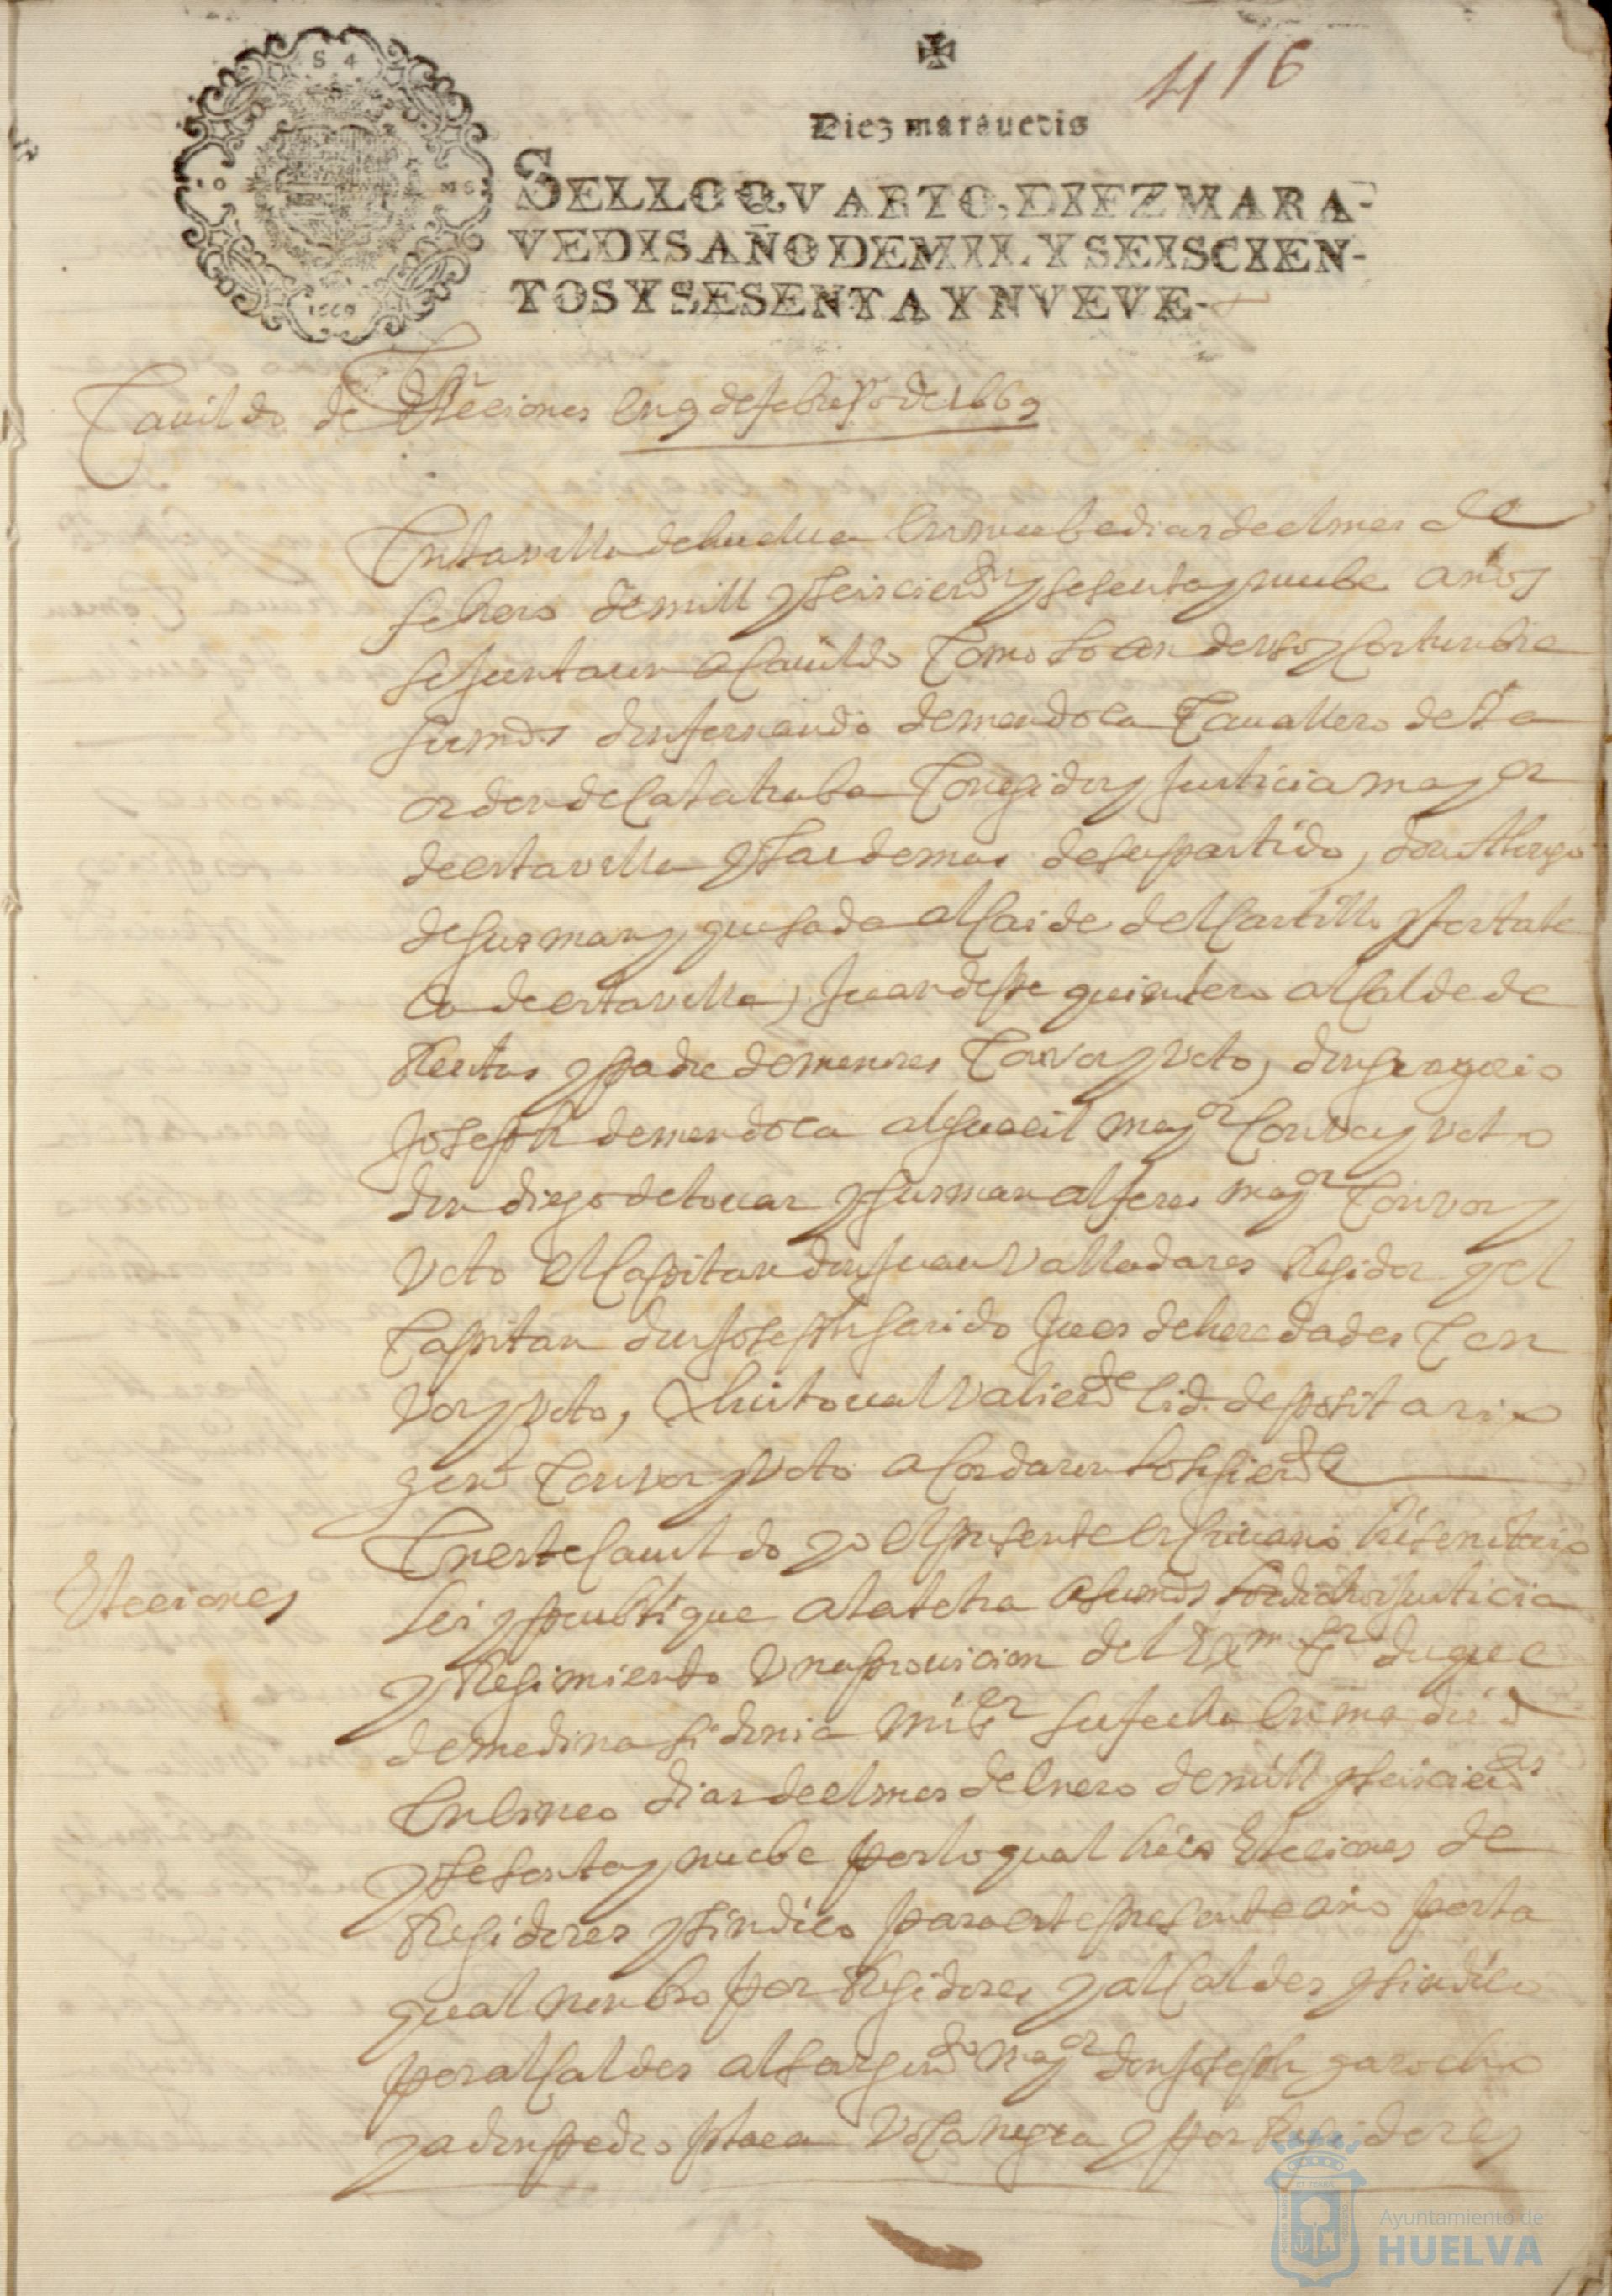 S 4
1669
4116
Diez marauedis
SELLO QVARTO, DIEZ MARA-
VEDIS, AÑO DE MIL Y SEISCIEN-
TOS Y SESENTA Y NVEVE-
Cauildo de Eleciones en 9 de febrero de 1669
En la villa de huelua en nuebe dias de el mes de
febrero de mill y seiscientos y sesenta y nuebe años
se juntaron a Cauildo Como lo an de uso y Costunbre
sus mds don fernando de mendoca Cauallero de la
orden de Calatraba Coregidor y Justicia mayor
de esta villa y las demas de su partido, don
de gusman y quesada alcaide del Castillo y fortale
ca de esta villa, Juan quintero alcalde de
Rentas y padre de menores Con vos y voto, don gregorio
Joseph de mendoca alguacil mayor Con vos y voto
don diego de touar y gusman alferes mayor Con vos y
voto el Capitan don Juan Valladares Regidor y el
Capitan don Joseph garido Jues de heredades Con
vos y voto, Christoual Valiente Cid depositario
genl Con vos y voto acordaron lo siguiente
Eleciones
En este Cauildo yo el presente escriuano hise notorio
lei y publique a la letra a sus mds los dichos Justicia
y Regimiento Una prouicion del Exmo Sr duque
de medina sidonia mi Sr su fecha en madrid
en cinco dias de el mes de enero de mill y seiscientos
y sesenta y nuebe por lo qual hiço Eleciones de
Regidores y sindico para este presente año por la
qual nonbro por Regidores y alcaldes y sindico
por alcaldes al sargento mayor don Joseph garocho
y a don pedro Vocanegra y por Regidores
Ayuntamiento de
HUELVA